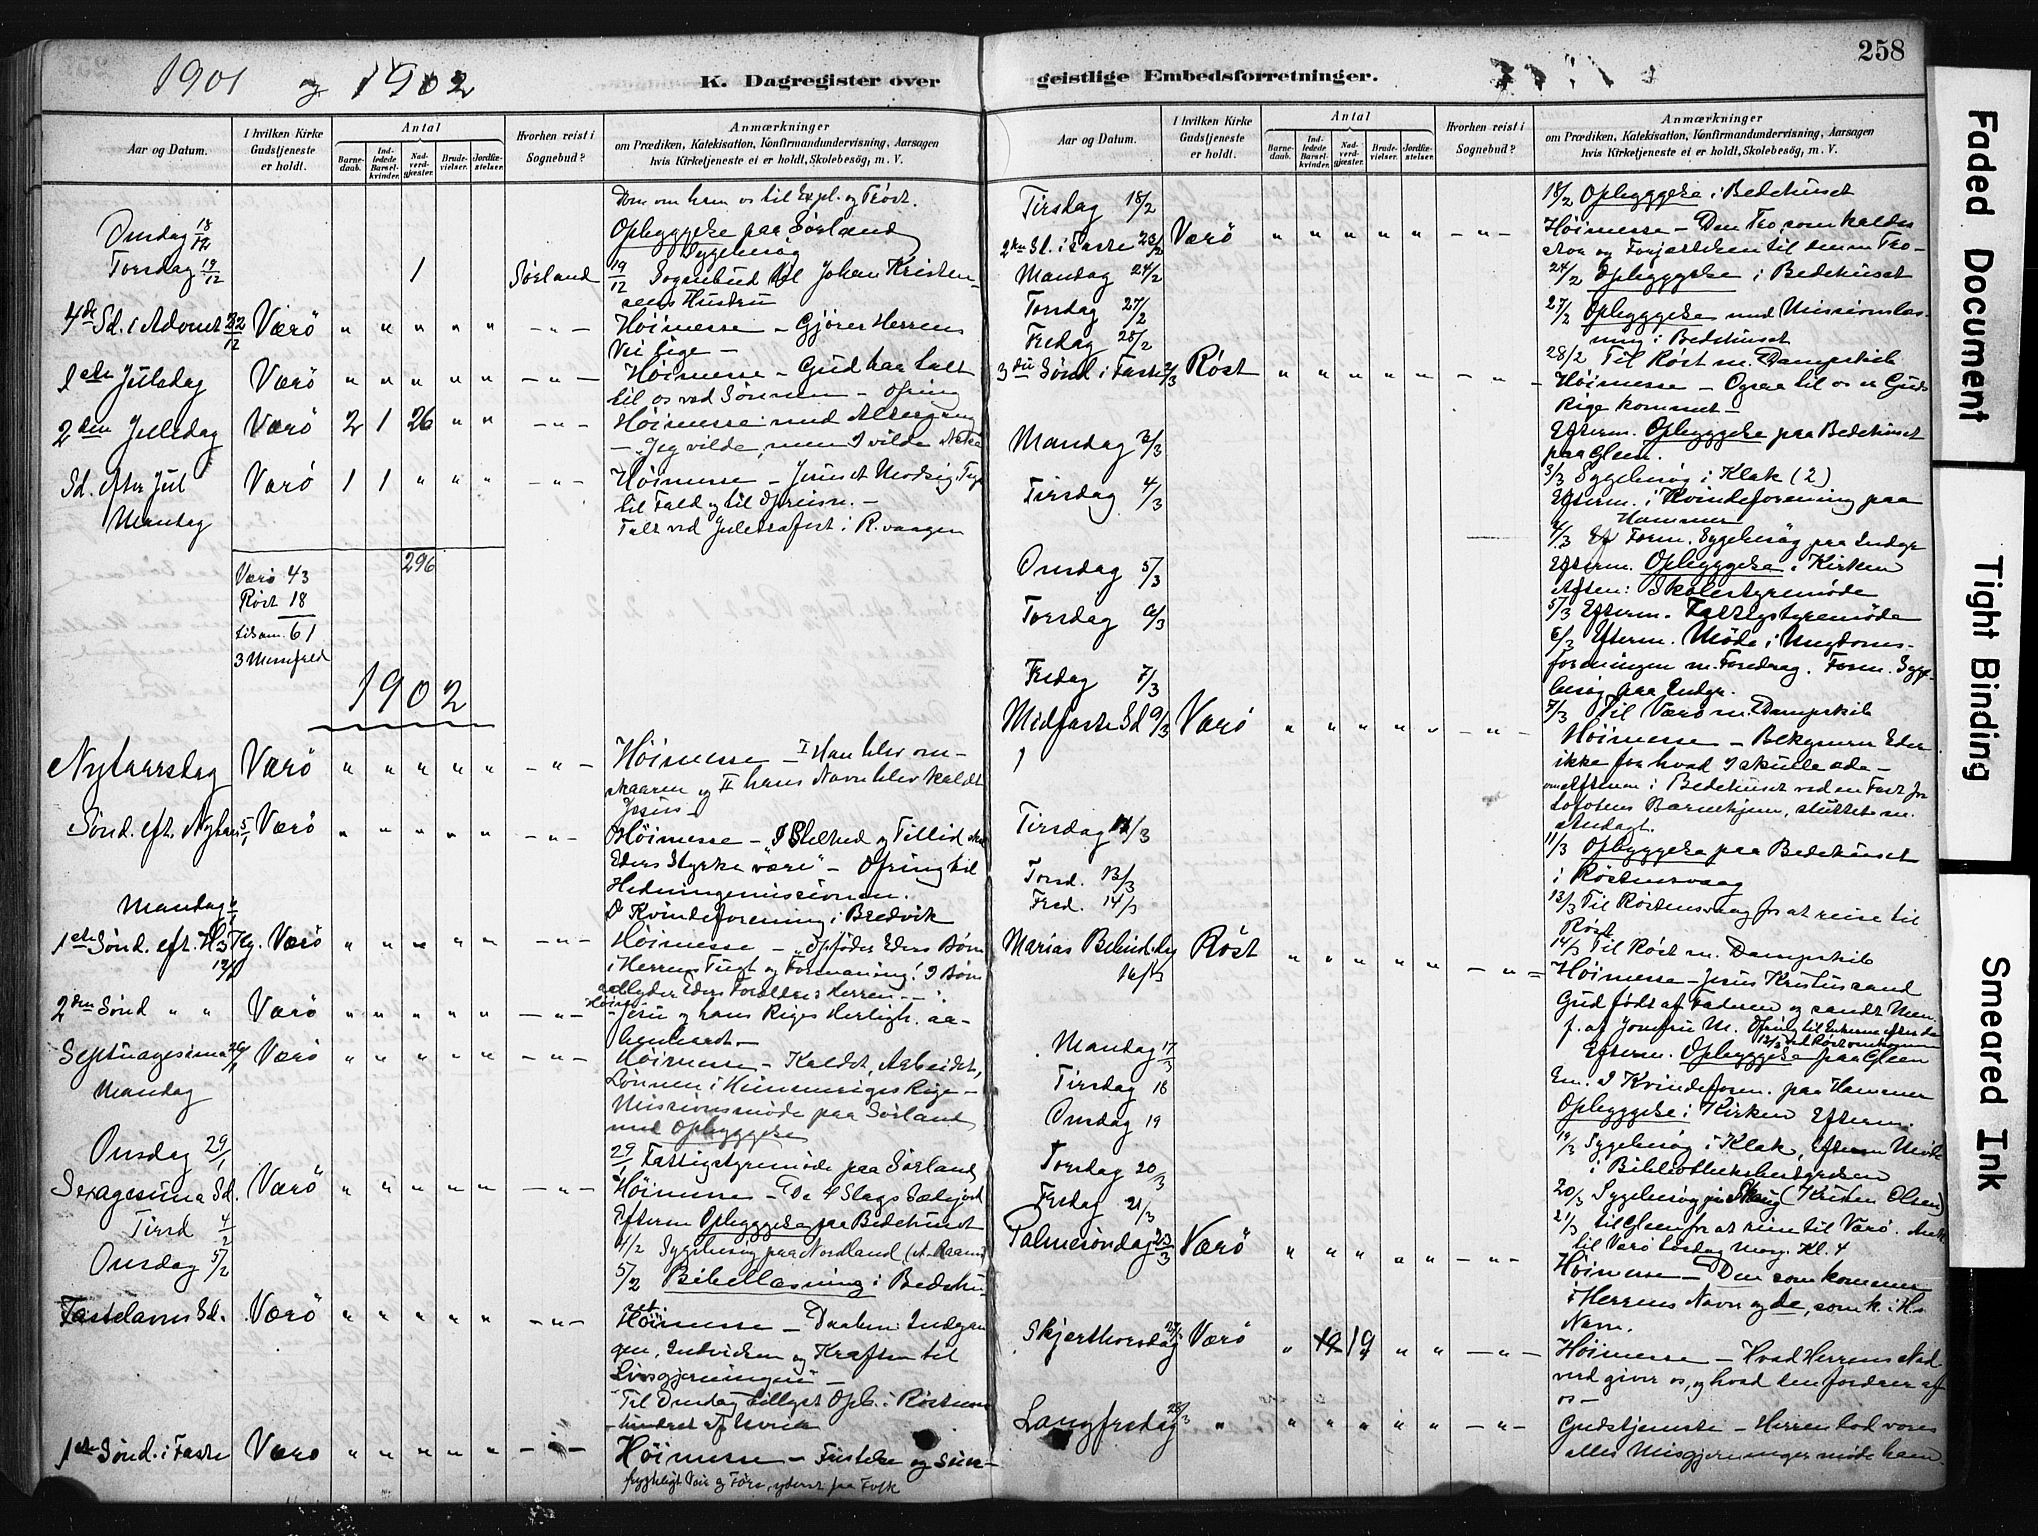 258
1901 og 1902
K. Dagregister over geistlige Embedsforretninger.
Aar og Datum.
I hvilken Kirke Gudstjeneste er holdt.
Antal
Barnedaab.
Indledede Barselkvinder.
Nadverdgjester.
Brudevielser.
Jordfæstelser.
Hvorhen reist i Sognebud?
Anmærkninger
om Prædiken, Katekisation, Konfirmandundervisning, Aarsagen
hvis Kirketjeneste ei er holdt, Skolebesøg, m. V.
Dom om ham os til Expl. og Trøst.
Onsdag 18/12 Opbyggelse paa Sørland
Sygebesøg
Torsdag 19/12 1 Sørland 19/12 Sognebud til Johan Kristensens Hustru
4de Sd. i Advent 22/12 Værö " " " " " - " - Höimesse - Gjører Herrens
Vei lige -
1ste Juledag Værö " " " " " - " - Höimesse - Gud har talt
til os ved Sønnen - Ofring
2den Juledag Værö 2 1 26 " " - " - Höimesse med Altergang
- Jeg vilde, men I vilde ikke
Sd. efter Jul Værö 1 1 " " " - " - Höimesse - Jesus et
til Fald og til Opreisn. -
Mandag Talt ved Juletræfest i R.vaagen
296
Værö 43
Röst 18
tilsam. 61
3 Messefald
1902
Nytaarsdag Værö " " " " " - " - Höimesse - I Han blev om-
skaaren og II hans Navn blev kaldt
Jesus
Sönd. eft. Nytaar 5/1 Værö " " " " " - " - Höimesse - I Stilhed og Tillid skal
Eders Styrke være - Ofring til
Hedningemissionen.
Mandag I Kvindeforening i Bredvik
1ste Sönd. eft. H 3 Kg. 12/1 Værö " " " " " - " - Höimesse - Opføder Eders Børn
i Herrens Tugt og Formaning! I Børn
adlyder Eders Forældre i Herren -
2den Sönd " " Værö " " " " " - " - Jesu og hans Riges Herligh. aa-
benbaret -
Septuagesima 26/1 Værö " " " " " - " - Höimesse - Kaldet, Arbeidet,
Lønnen i Himmeriges Rige -
Mandag Missionsmøde paa Sørland
med Opbyggelse
Onsdag 29/1 29/1 Fattigstyremøde paa Sørland
Sexagesima Sd. Værö " " " " " - " - Höimesse - De 4 Slags Sædejord
Efterm Opbyggelse paa Bedehuset
Tirsd 4/2 4/2 Sygebesøg paa Nordland
Onsdag 5/2 5/2 Bibellæsning i Bedehu-
set.
Fastelavns Sd. Værö " " " " " - " - Höimesse - Daaben: Indgan-
gen, Indvielsen og Kraften til
Livsgjerningen -
Til Onsdag tillyst Opb. i Röstnes-
hindret af Uveir
1ste Sönd. i Faste Værö " " " " " - " - Höimesse - Fristelse og Seier-
frygteligt Veir og Føre, yderst faa Folk
Aar og Datum.
I hvilken Kirke Gudstjeneste er holdt.
Antal
Barnedaab.
Indledede Barselkvinder.
Nadverdgjester.
Brudevielser.
Jordfæstelser.
Hvorhen reist i Sognebud?
Anmærkninger
om Prædiken, Katekisation, Konfirmandundervisning, Aarsagen
hvis Kirketjeneste ei er holdt, Skolebesög, m. V.
Tirsdag 18/2 18/2 Opbyggelse i Bedehuset
2den Sd. i Faste 23/2 Værö " " " " " - " - Höimesse - Den Tro, som kaldes
stor og Forjættelsen til denne Tro -
Mandag 24/2 24/2 Opbyggelse i Bedehuset
Torsdag 27/2 27/2 Opbyggelse med Missionslæs-
ning i Bedehuset
Fredag 28/2 28/2 Til Röst m. Dampskib
3die Sönd. i Faste 2/3 Röst " " " " " - " - Höimesse - Ogsaa til os er Guds
Rige kommet -
Efterm. Opbyggelse paa Bedehuset
paa Gleen.
Mandag 3/3 3/3 Sygebesög i Klak (2)
Efterm. i Kvindeforening paa
Hammer
Tirsdag 4/3 4/3 Form. Sygebesøg paa Indgr
Efterm. Opbyggelse i Kirken
Aften: Skolestyremöde
Onsdag 5/3 5/3 Efterm. Fattigstyremøde
Torsdag 6/3 6/3 Efterm. Møde i Ungdoms-
foreningen m. Foredrag. Form. Syge-
besøg paa Indgr.
Fredag 7/3 7/3 Til Værö m. Dampskib
Midfaste Sd 9/3 Værö " " " " " - " - Höimesse - Bekymrer Eder
ikke for hvad I skulle æde -
Aftenen i Bedehuset ved en Fest for
Lofotens Barnehjem, sluttet m.
Andagt.
Tirsdag 11/3 11/3 Opbyggelse paa Bedehuset
i Röstnesvaag
Torsd. 13/3 13/3 Til Röstnesvaag for at reise til
Röst
Fred. 14/3 14/3 Til Röst m. Dampskib
Marias Bebud. dg 16/3 Röst " " " " " - " - Höimesse - Jesus Kristus sand
Gud født af Faderen og sandt Men.
f. af Jomfru M.
Efterm. Opbyggelse paa Gleen
Mandag 17/3 Em. I Kvindeforen. paa Hammer
Tirsdag 18 Opbyggelse i Kirken Efterm.
Onsdag 19 19/3 Sygebesøg i Klak, Efterm Møde
i Bibliotheksbestyrelsen
Torsdag 20/3 20/3 Sygebesøg
Fredag 21/3 21/3 til Gleen for at reise til Værö.
til Værö Lördag Morg. Kl. 4
Palmesöndag 23/3 Værö " " " " " - " - Höimesse - Den som kommer
i Herrens Navn og de, som k. i H.s
Navn.
Skjærthorsdag 27/3 Værö " 19 " " - " - Höimesse - Hvad Herrens Nad-
verd giver os, og hvad den fordrer af
os -
Langfredag 28/3 " " " " " " - " - Gudstjeneste - Herren lod vores
alles Misgjerninger møde ham
Faded Document
Tight Binding
Smeared Ink